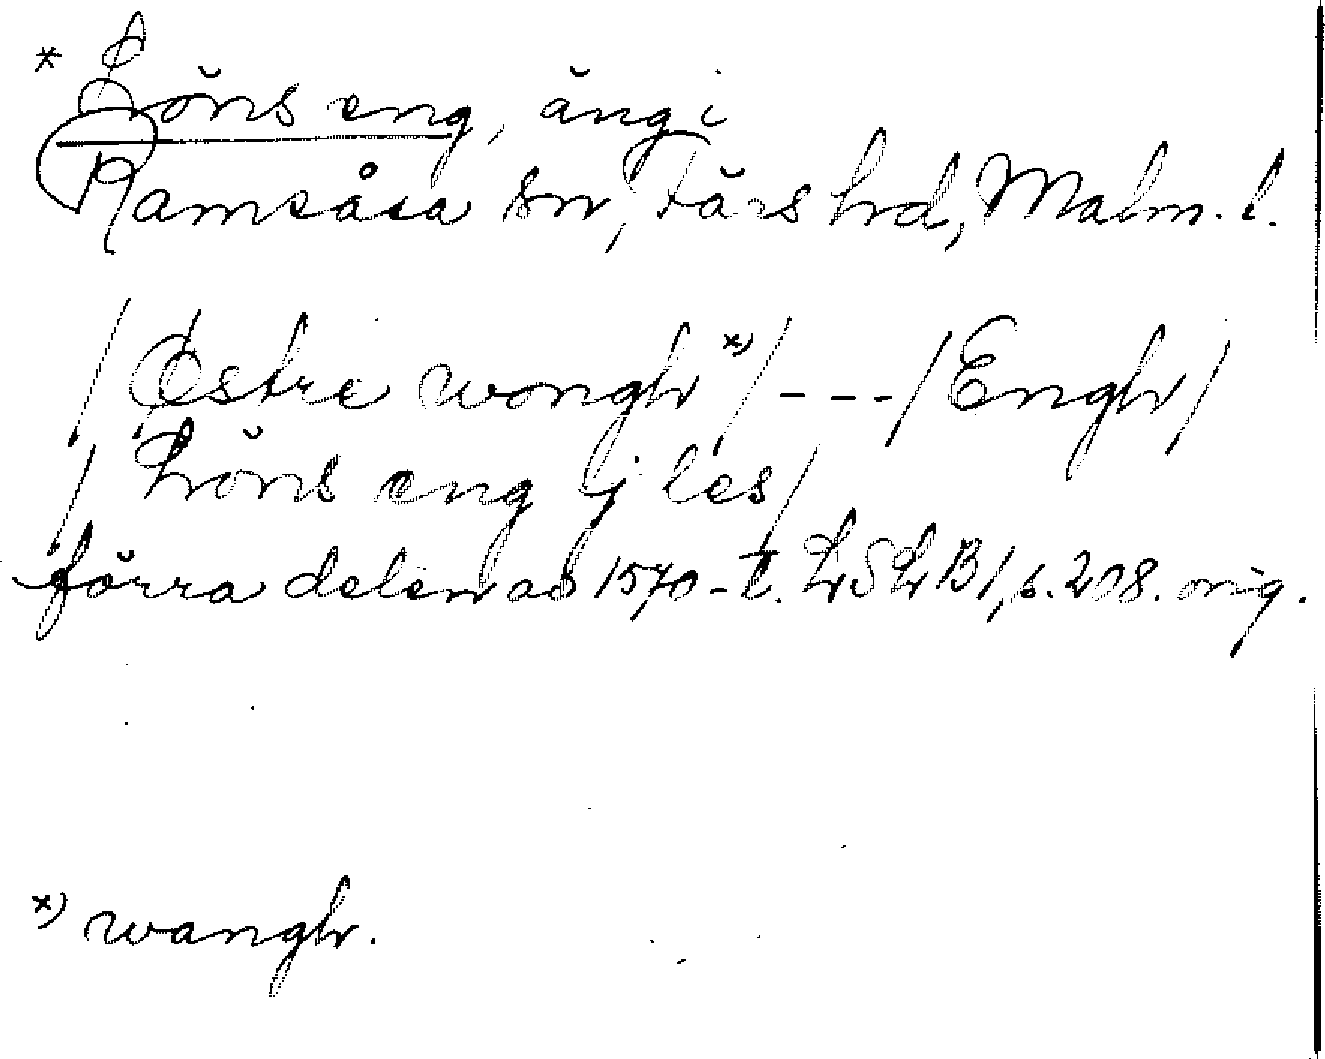 * Löns eng, äng i
Ramsåsa sn, Färs hd, Malm. l.
/Østre wongh *)/ - - - /Engh/
/Löns eng ij les/
förra delen av 1570-t. LSLB 1, s. 208. orig.
*) wangh.